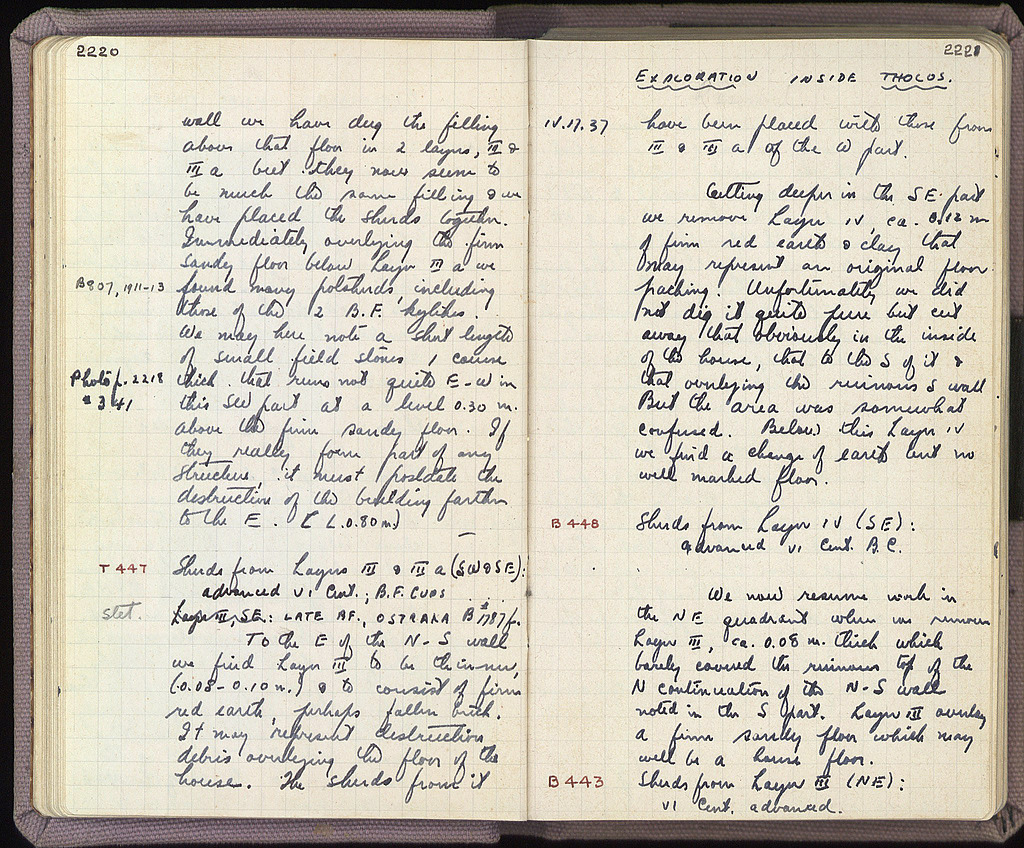 2220
wall we have dug the filling
above that floor in 2 layers, III &
III a but they now seem to
be much the same filling & we
have placed the sherds together.
Immediately overlying the firm
sandy floor below Layer III a we
B 807, 1911-13 found many potsherds, including
those of the 2 B.F. kylikes.
We may here note a short length
of small field stones 1 course
Photo p. 2218 thick that runs not quite E-W in
# 341 this SW part at a level 0.30 m.
above the firm sandy floor. If
they really form part of any
structure, it must postdate the
destruction of the building farther
to the E. (L. 0.80 m)
T 447 Sherds from Layers III & III a (SW & SE):
advanced VI Cent.; B.F. CUPS
stet. Layer III, SE: LATE AF., OSTRAKA B 1787 f.
To the E of the N-S wall
we find Layer III to be thinner,
(0.08-0.10 m.) & to consist of firm
red earth, perhaps fallen brick.
It may represent destruction
debris overlying the floor of the
house. The sherds from it
2221
EXPLORATION INSIDE THOLOS.
IV.17.37 have been placed with those from
III & III a of the W part.
Getting deeper in the SE part
we remove Layer IV, ca. 0.12 m
of firm red earth & clay that
may represent an original floor
packing. Unfortunately we did
not dig it quite pure but cut
away that obviously in the inside
of the house, that to the S of it &
that overlying the ruinous S wall
But the area was somewhat
confused. Below this Layer IV
we find a change of earth but no
well marked floor.
B 448 Sherds from Layer IV (SE):
advanced VI Cent. B.C.
We now resume work in
the NE quadrant when we remove
Layer III, ca. 0.08 m. thick which
barely covered the ruinous top of the
N continuation of the N-S wall
noted in the S part. Layer III overlay
a firm sandy floor which may
well be a house floor.
B 443 Sherds from Layer III (NE):
VI Cent. advanced.